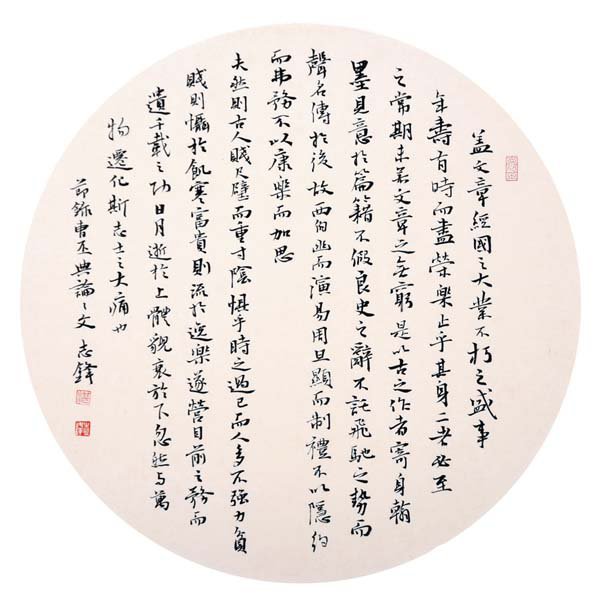 盖文章經國之大業不朽之盛事
年壽有時而盡榮樂止乎其身二者必至
之常期未若文章之無窮是以古之作者寄身翰
墨見意於篇籍不假良史之辭不託飛馳之勢而
聲名傳於後故西伯幽而演易周旦顯而制禮不以隱約
而弗務不以康樂而加思
夫然則古人賤尺璧而重寸陰懼乎時之過已而人多不強力貧
賤則懾於飢寒富貴則流於逸樂遂營目前之務而
遺千載之功日月逝於上體貌衰於下忽然與萬
物遷化斯志士之大痛也
節錄曹丕典論之文 志鋒